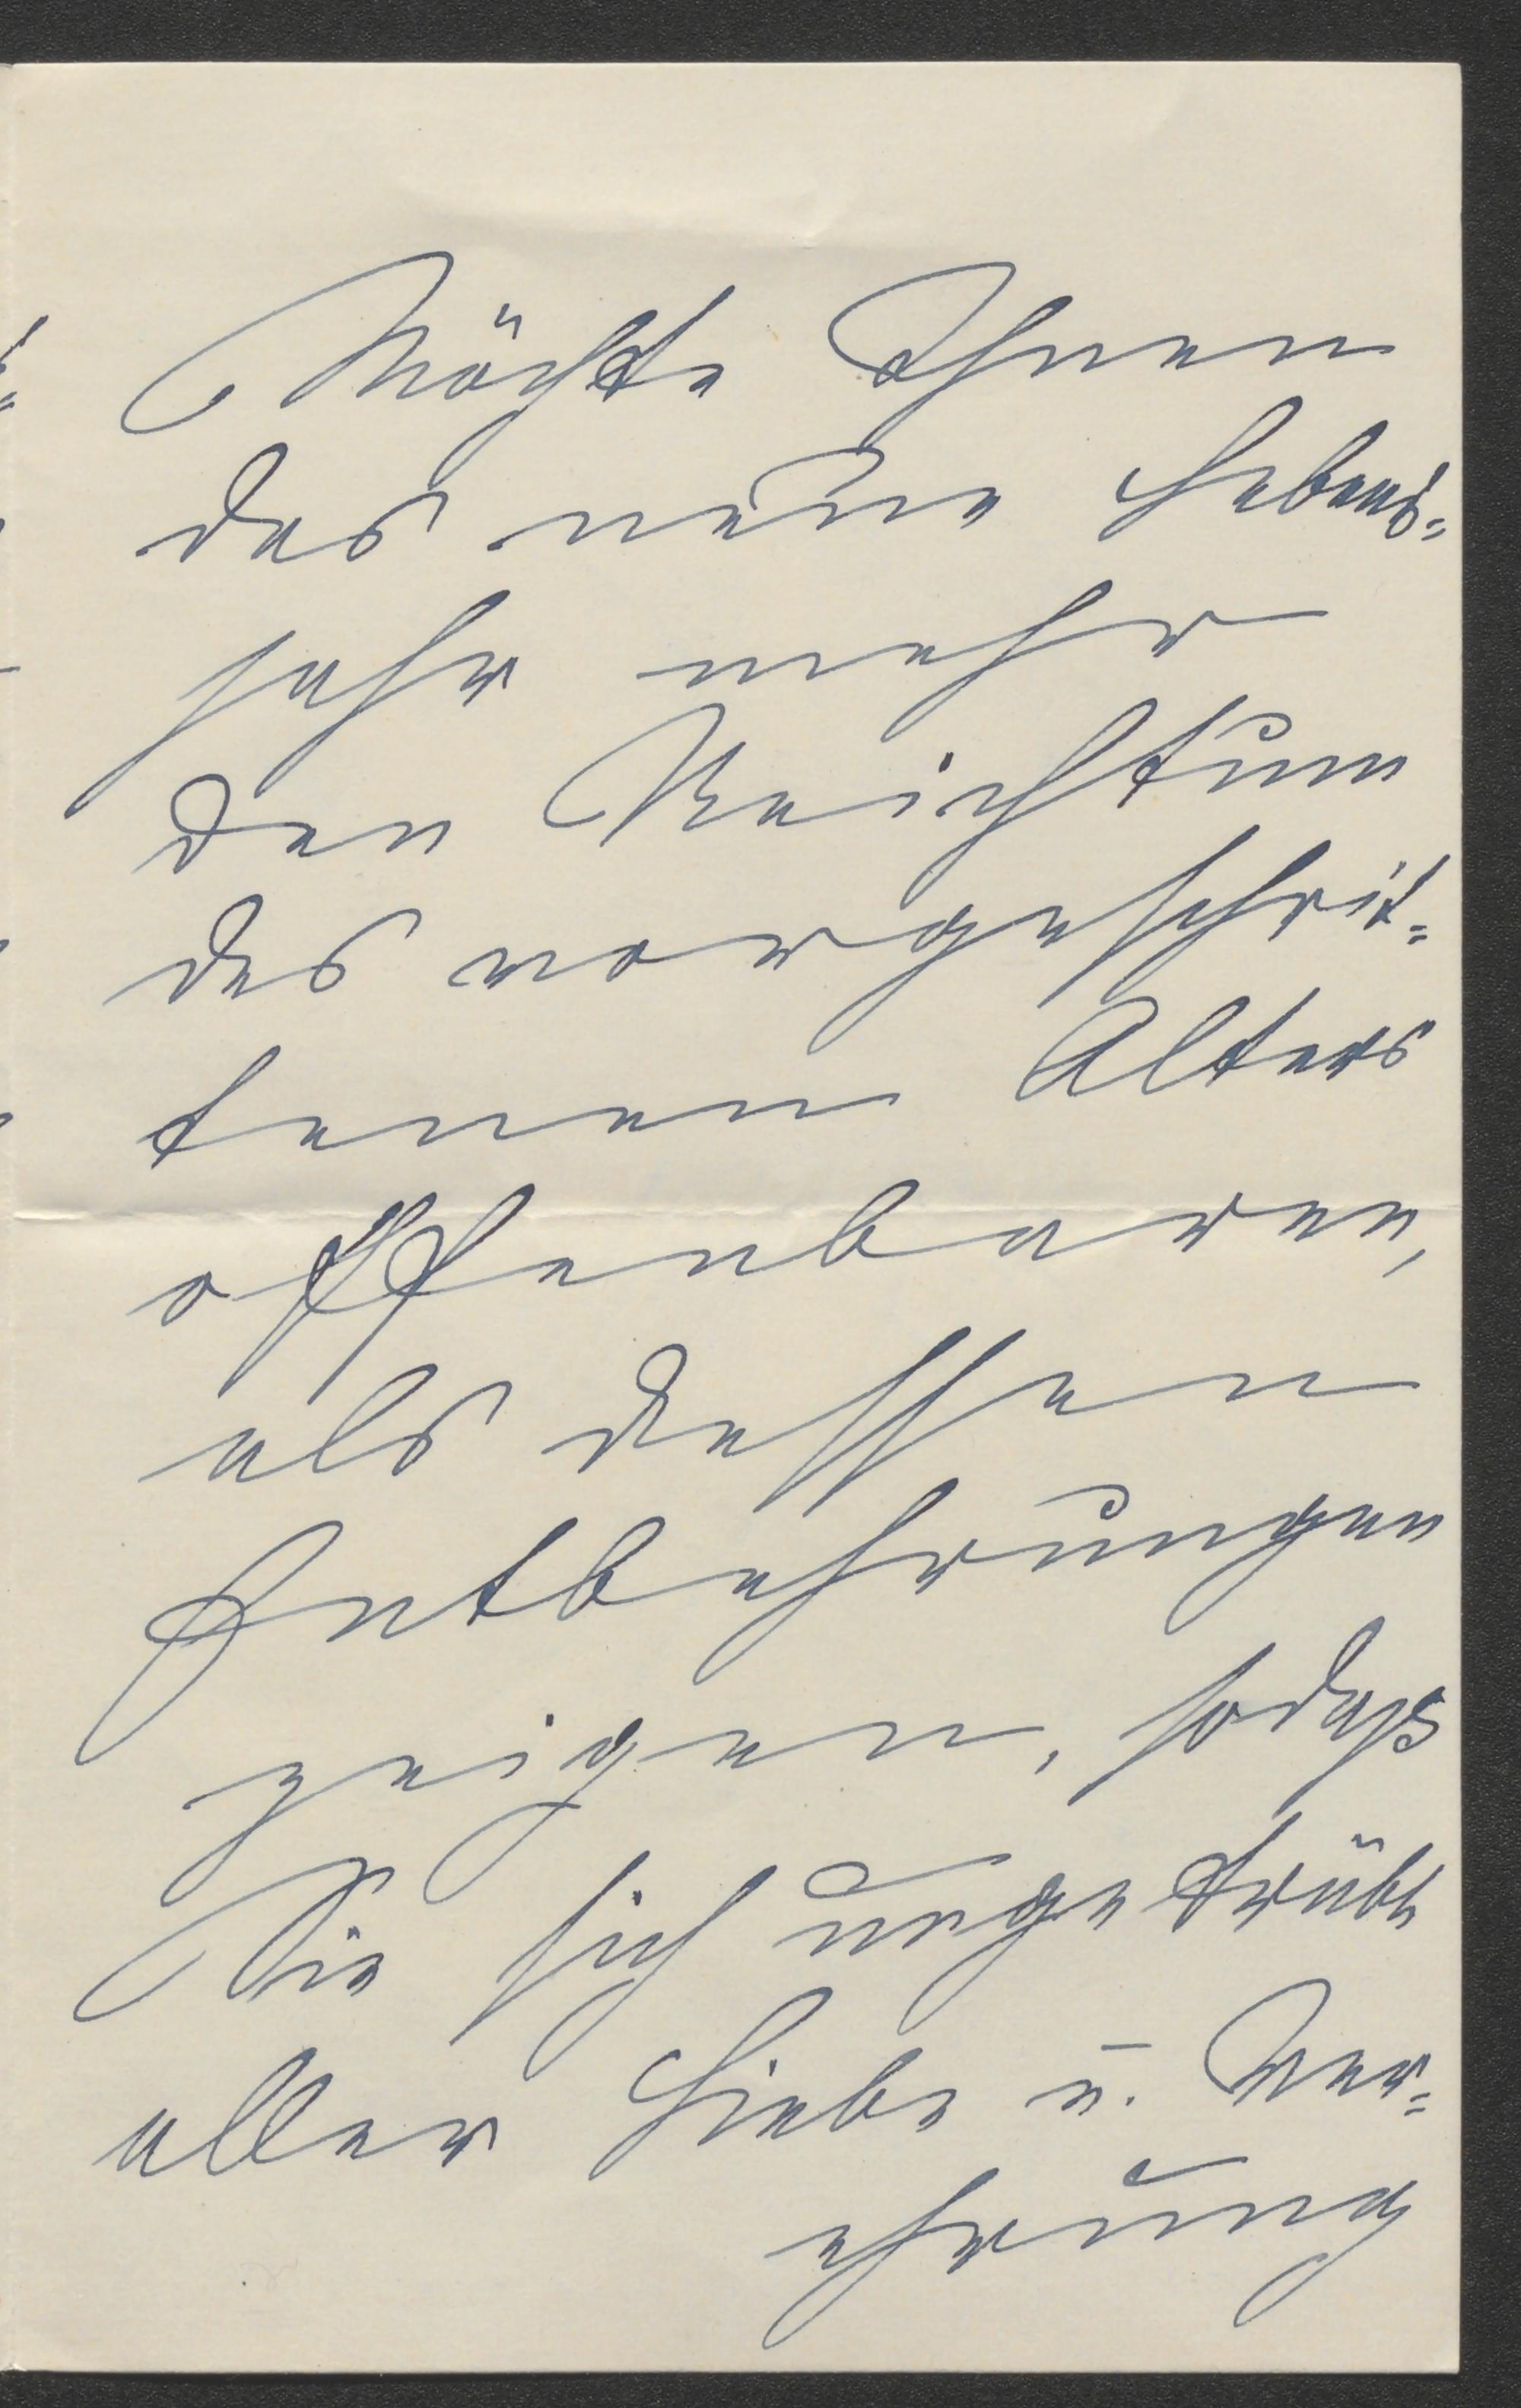 Möchte Ihnen
das neue Lebens-
jahr mehr
den Reichtum
des vorgeschrit-
tenen Alters
offenbaren,
als dessen
Entbehrungen
zeigen, sodass
Sie sich ungetrübt
aller Liebe u. Ver-
ehrung